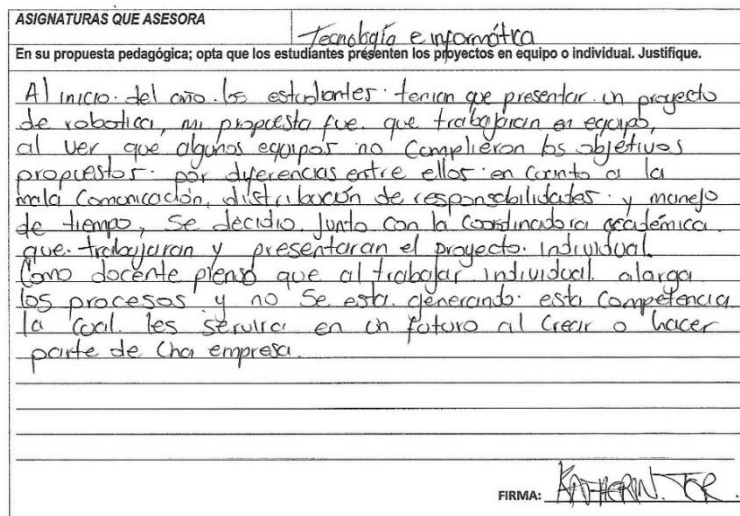 ASIGNATURAS QUE ASESORA
Tecnología e informática
En su propuesta pedagógica; opta que los estudiantes presenten los proyectos en equipo o individual. Justifique.
Al inicio. del año. los estudiantes. tenian que presentar. un proyecto
de robotica, mi propuesta fue. que trabajaran en equipo,
al ver que algunos equipos no Complieron los objetivos
propuestos. por diferencias entre ellos. en Cuanto a la
mala Comunicación, distribución de responsabilidades. y manejo
de tiempo, Se decidio. Junto con la Coordinadora académica.
que. trabajaran y presentaran el proyecto. Individual.
Como docente pienso que al trabajar individual. alarga
los procesos y no Se esta. generando. esta Competencia
la Cual. les Servira en un futuro al Crear o hacer
parte de Una empresa.
FIRMA: KATHERIN. TCR.